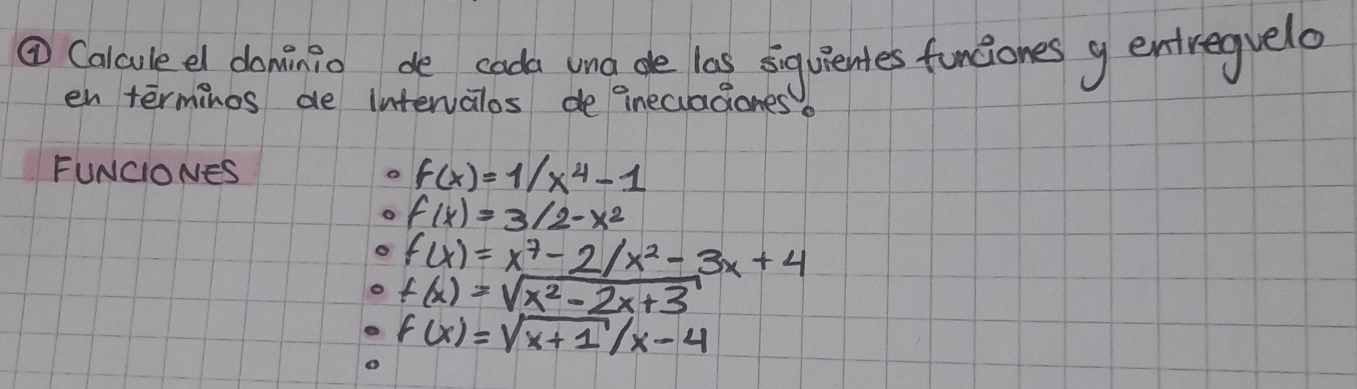 ① Calcule el dominio de cada una de las siguientes funciones y entreguelo
en términos de intervalos de inecuaciones.
FUNCIONES
° f(x) = 1/x⁴ - 1
° f(x) = 3/2 - x²
° f(x) = x⁷ - 2/x² - 3x + 4
° f(x) = √(x² - 2x + 3)
° f(x) = √(x + 1)/x - 4
°